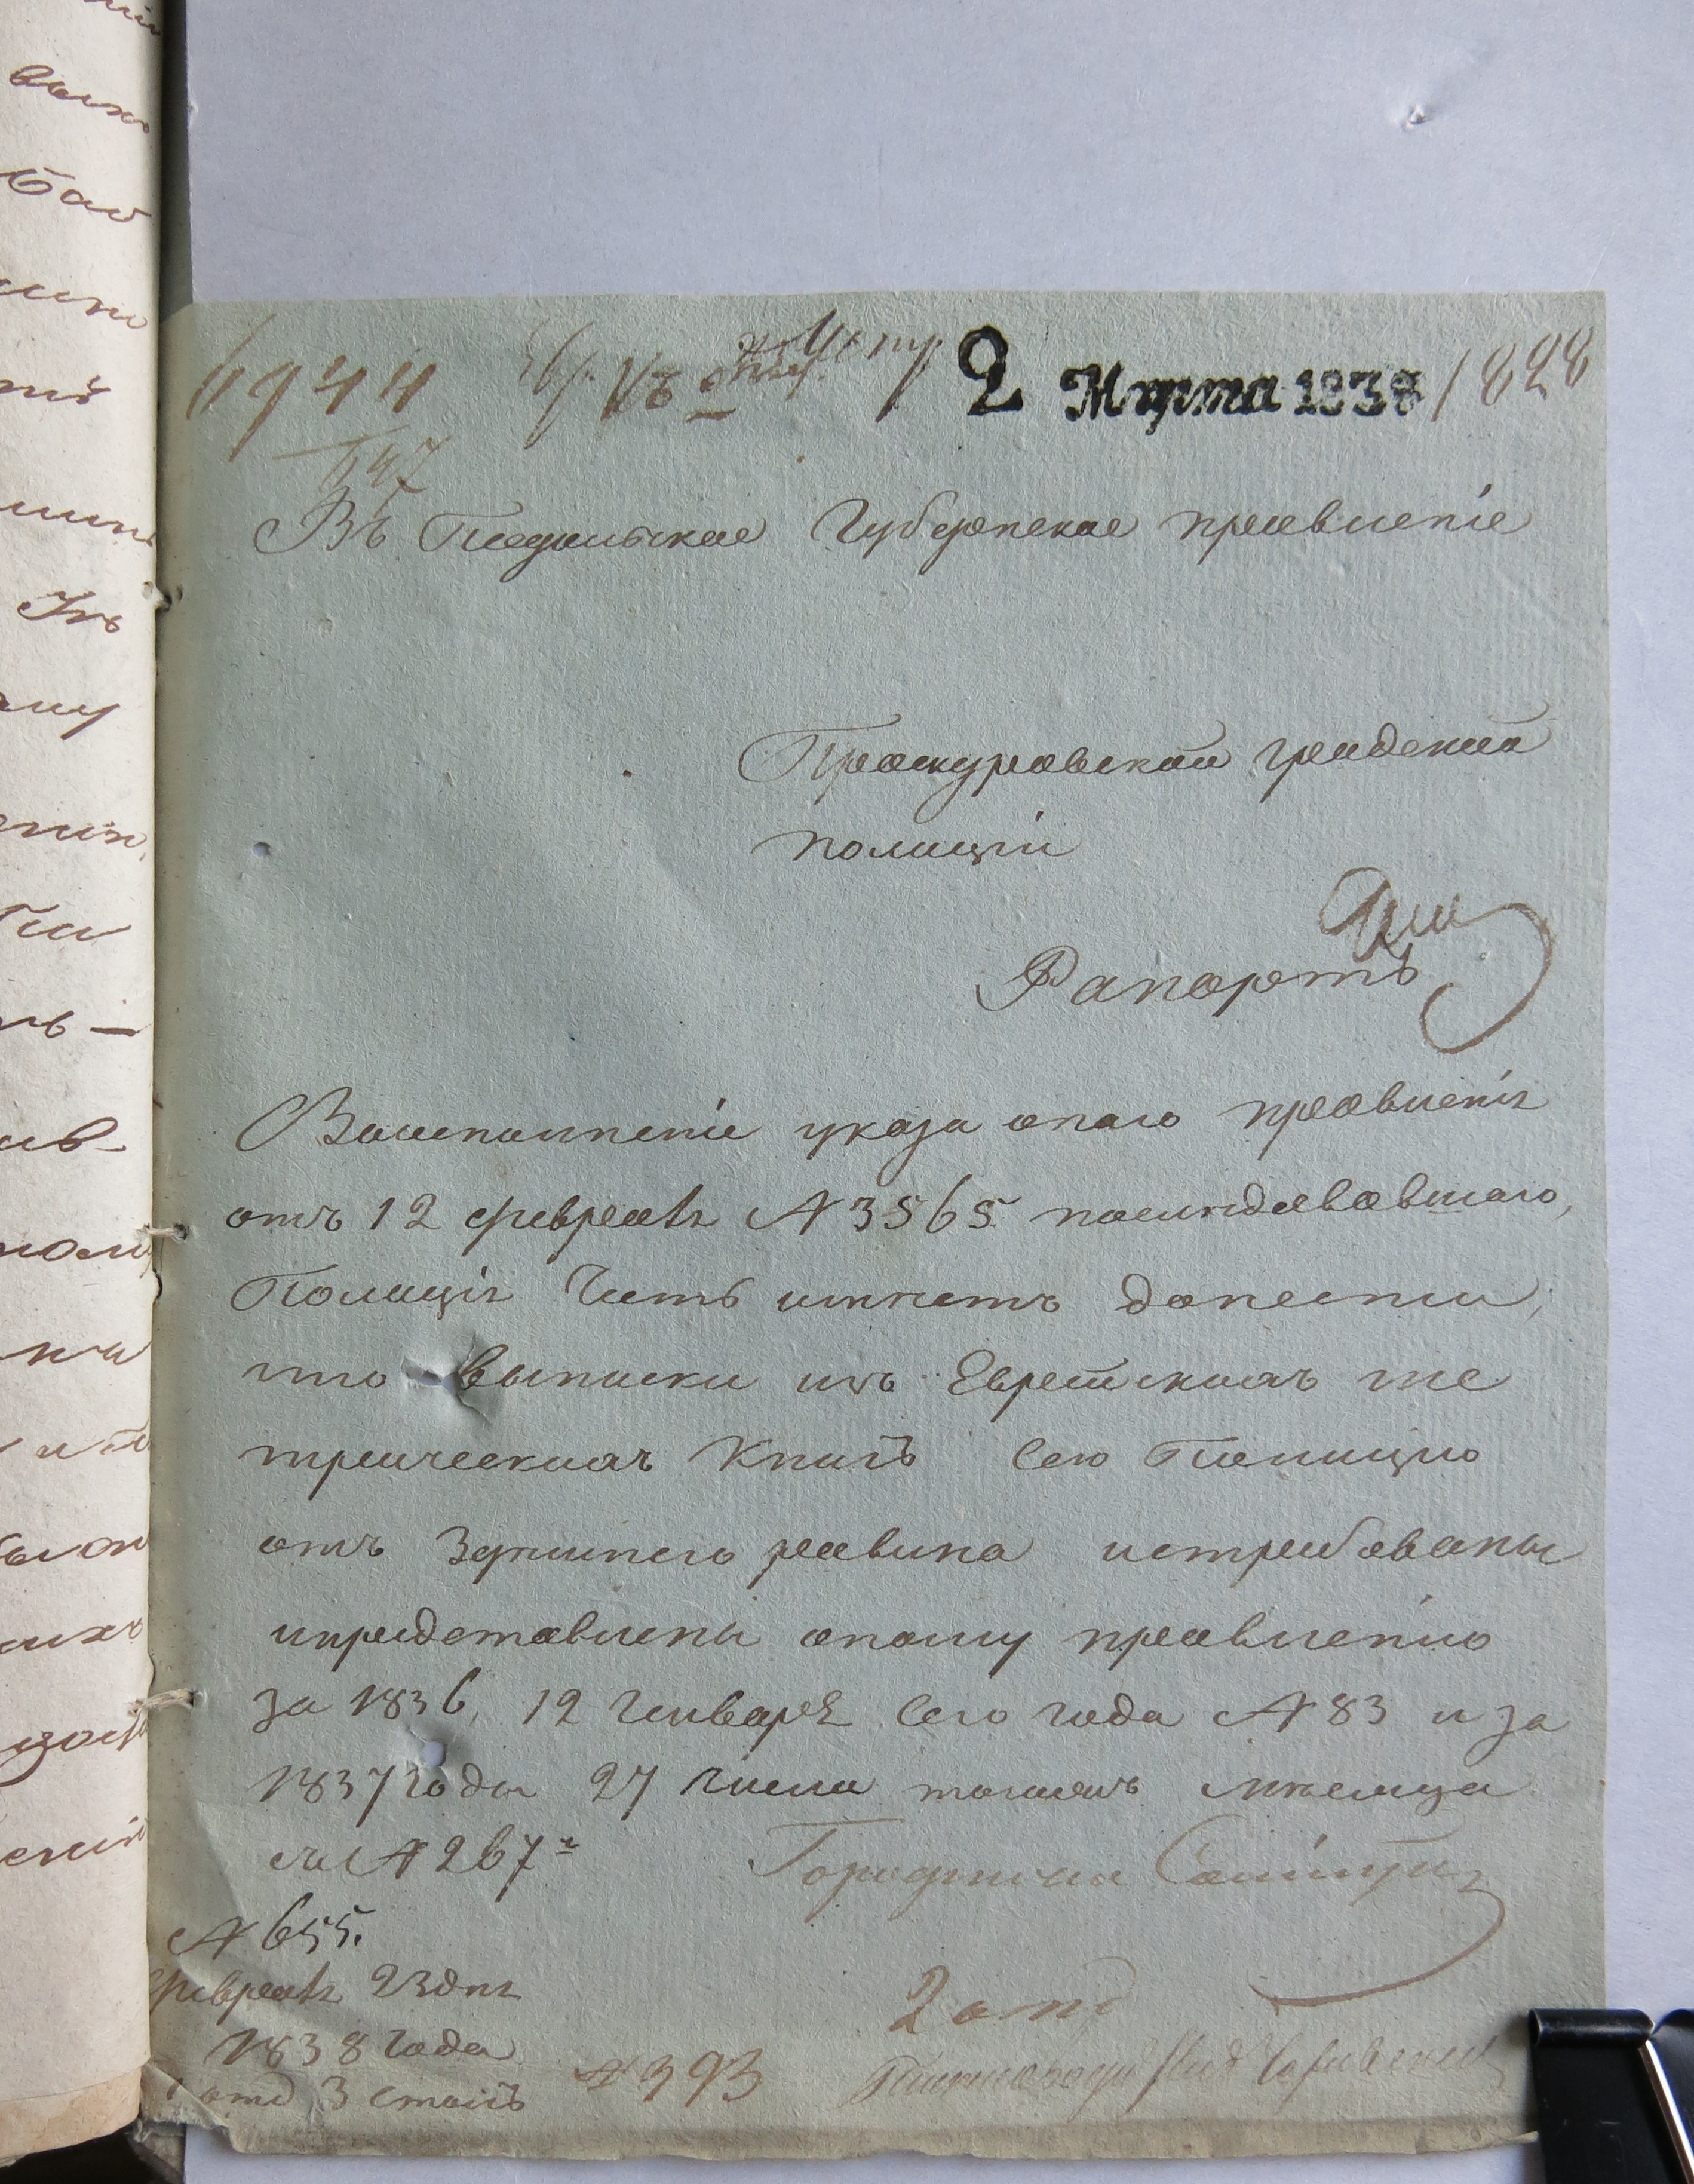 6944
2 Марта 1838 / 1828
647
Въ Подольское Губернское правленіе
Проскуровской градской
полиціи
Рапортъ
Воисполненіе указа онаго правленія
отъ 12 февраля № 3565 последовавшаго,
Полиція Честь имѣетъ донести,
что выписки изъ Еврейскихъ ме
трическихъ Книгъ Сею Полициею
отъ Здѣшнего равина истребованы
ипредставлены оному правлению
за 1836, 12 Генваря Сего года № 83 и за
1837 годы 27 числа тогожъ мѣсяца
за № 267
Городничий
№ 655.
февраля 23 дня
1838 года
отд 3 столъ
№ 393
2 отд